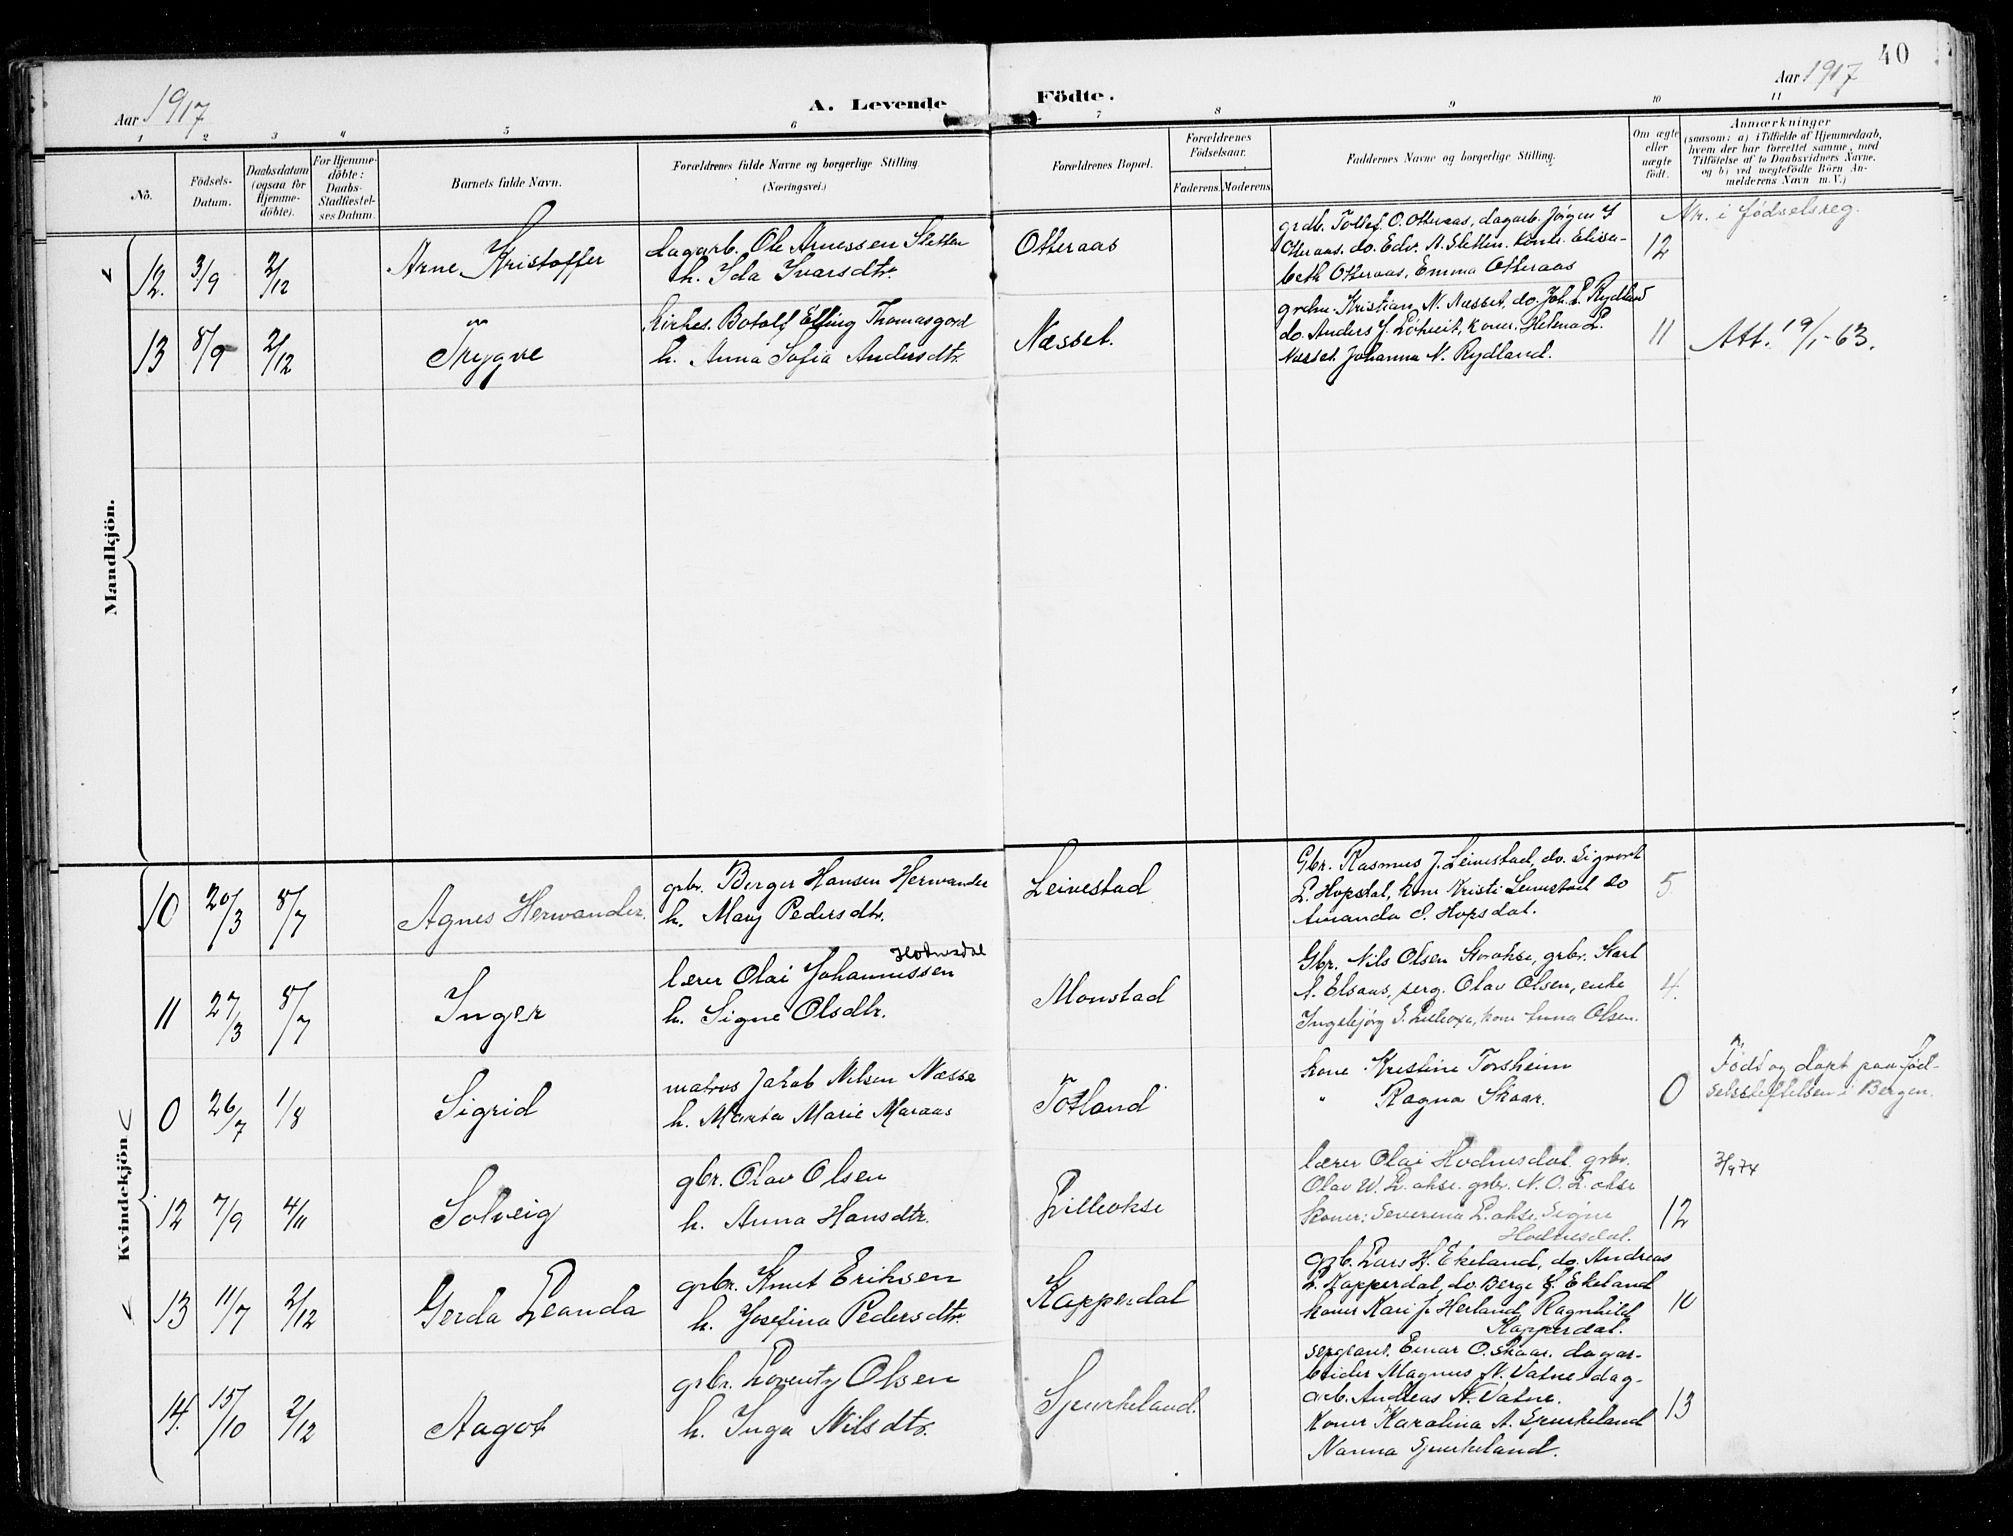 40
Aar 1917
A. Levende Födte.
Aar 1917
1 2 3 4 5 6 7 8 9 10 11
No.
Födsels-Datum.
Daabsdatum (ogsaa for Hjemme-döbte).
For Hjemme-döbte: Daabs-Stadfæstel-ses Datum.
Barnets fulde Navn.
Forældrenes fulde Navne og borgerlige Stilling.
(Næringsvei.)
Forældrenes Bopæl.
Forældrenes Födselsaar.
Faderens. Moderens.
Faddernes Navne og borgerlige Stilling.
Om ægte eller uægte födt.
Anmærkninger
(saasom: a) i Tilfælde af Hjemmedaab,
hvem der har forrettet samme, med
Tilföielse af to Daabsvidners Navne,
og b) ved uægtefödte Börn An-
melderens Navn m. V.)
Nr. i födselsreg.
Mandkjön.
12. 3/9 2/12 Arne Kristoffer
dagarb. Ole Arnessen Sletten
h. Ida Ivarsdtr.
Otteraas
grdb. Tollef O. Otteraas, dagarb. Jörgen
Otteraas, do. Edv. A. Sletten. Kone Elisa-
beth Otteraas, Emma Otteraas
12
13 8/9 2/12 Trygve
kirkes. Botolf Elling Thomasgard
h. Anna Sofia Andersdtr.
Næsset.
Kristian N. Næsset, do. Joh. Rydland
do. Anders J. Lötveit, koner. Helena L.
Næsset. Johanna N. Rydland.
11
Att. 19/1-63.
Kvindekjön.
10 20/3 8/7 Agnes Herwander.
grbr. Berger Hansen Herwander
h. Mary Pedersdtr.
Leivestad
Gbr. Rasmus J. Leivestad, do. Sigvort
L. Hopsdal, kone Kristi Leivestad do
Amanda O. Hopsdal.
5
11 27/3 8/7 Inger
Hodnesdal
lærer Olai Johannessen
h. Signe Olsdtr.
Monstad
Gbr. Nils Olsen Storokse, grbr. Karl
A. Elsaas, serg. Olav Olsen, enke
Ingebjörg Lilleoxe, kone Anna Olsen.
4.
0 26/7 1/8 Sigrid
matros Jakob Nilsen Næsse
h. Marta Marie Maraas
Totland
kone Kristine Torsheim
" Ragna Skaar.
0
Född og döpt paa Föd-
selsstiftelsen i Bergen.
12 7/9 4/11 Solveig
gbr. Olav Olsen
h. Anna Hansdtr.
Lilleokse
lærer Olai Hodnesdal. grbr.
Olav W. L. okse. grbr. N. O. L. okse
koner: Severina L. okse. Signe
Hodnesdal.
12
13 11/7 2/12 Gerda Leanda
grbr. Knut Eriksen
h. Josefina Pedersdtr.
Kapperdal
grb. Lars H. Ekeland, do. Andreas
L. Kapperdal, do. Berge Ekeland
koner Kari J. Herland, Ragnhild
Kapperdal.
10
14. 15/10 2/12 Aagot
grbr. Lorentz Olsen
h. Inga Nilsdtr.
Spurkeland.
sergeant. Einar O. Skaar. dagar-
beider Magnus N. Vatne, dag-
arb. Andreas N. Vatne.
Koner Karolina A. Spurkeland
Nanna Spurkeland.
13